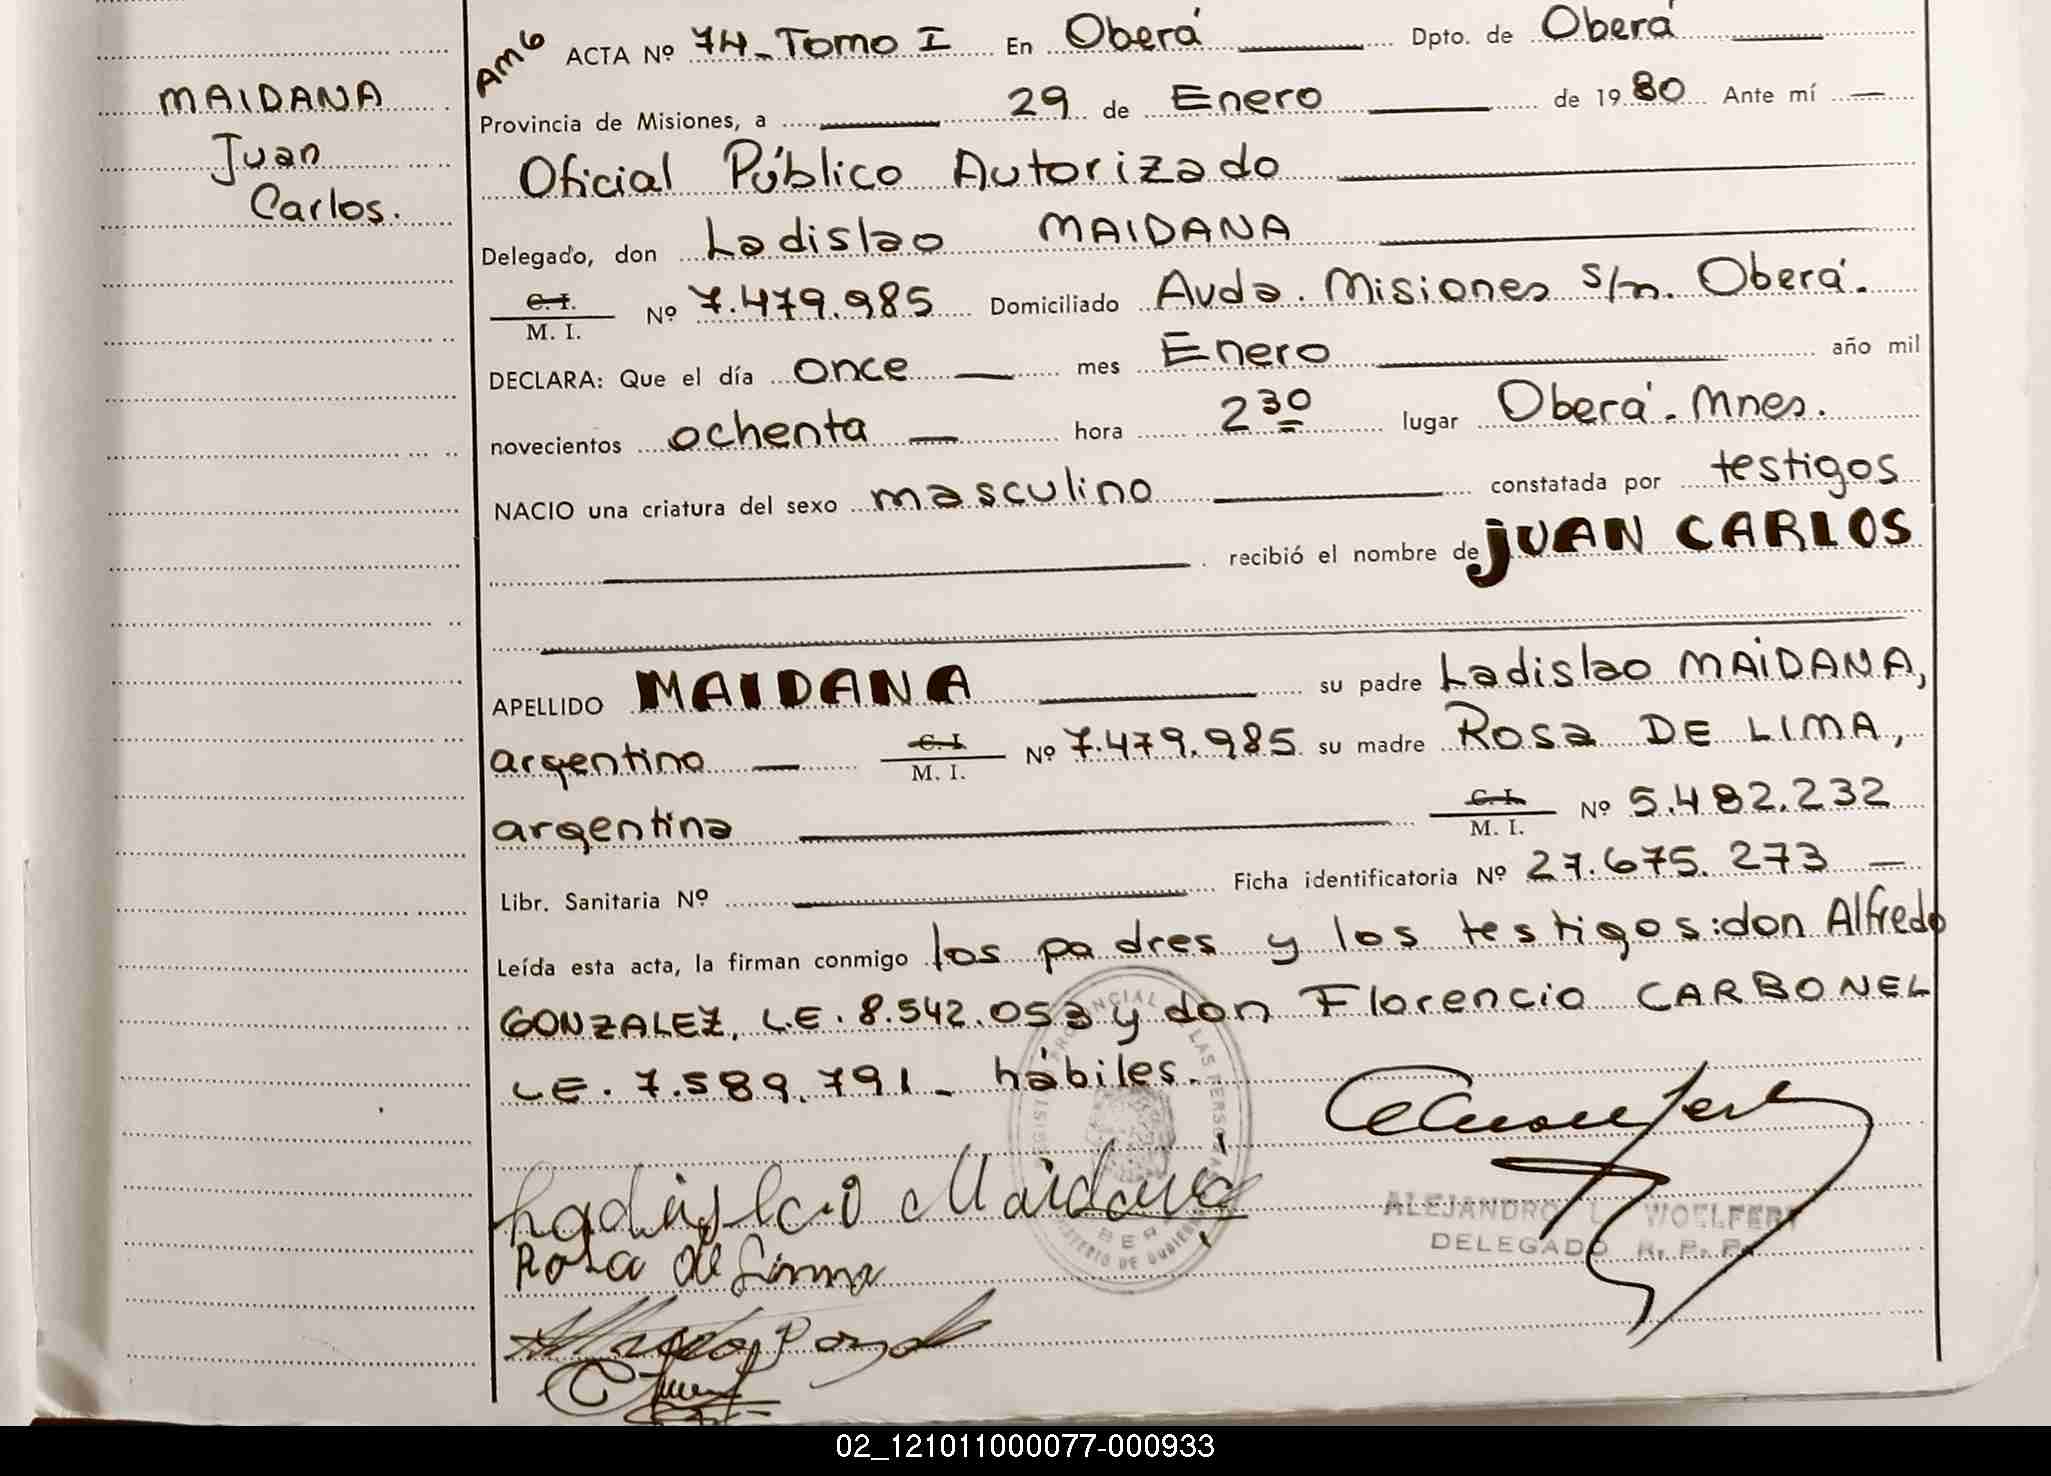 MAIDANA
Juan
Carlos.
Am6
ACTA Nº 74 - Tomo I En Oberá Dpto. de Oberá
Provincia de Misiones, a 29 de Enero de 1980 Ante mí
Oficial Público Autorizado
Delegado, don Ladislao MAIDANA
C. I.
M. I. Nº 7.479.985 Domiciliado Avda. Misiones s/n. Oberá.
DECLARA: Que el día once mes Enero año mil
novecientos ochenta hora 2 30 lugar Oberá - Mnes.
NACIO una criatura del sexo masculino constatada por testigos
recibió el nombre de JUAN CARLOS
APELLIDO MAIDANA su padre Ladislao MAIDANA,
argentino C. I. M. I. Nº 7.479.985 su madre Rosa DE LIMA,
argentina C. I. M. I. Nº 5.482.232
Libr. Sanitaria Nº Ficha identificatoria Nº 27.675.273
Leída esta acta, la firman conmigo los padres y los testigos: don Alfredo
GONZALEZ, L.E. 8.542.053 y don Florencio CARBONEL
L.E. 7.589.791 - hábiles.
Ladislao Maidana
Rosa de Lima
ALEJANDRO L. WOELFERT
DELEGADO R. P. P.
02_121011000077-000933